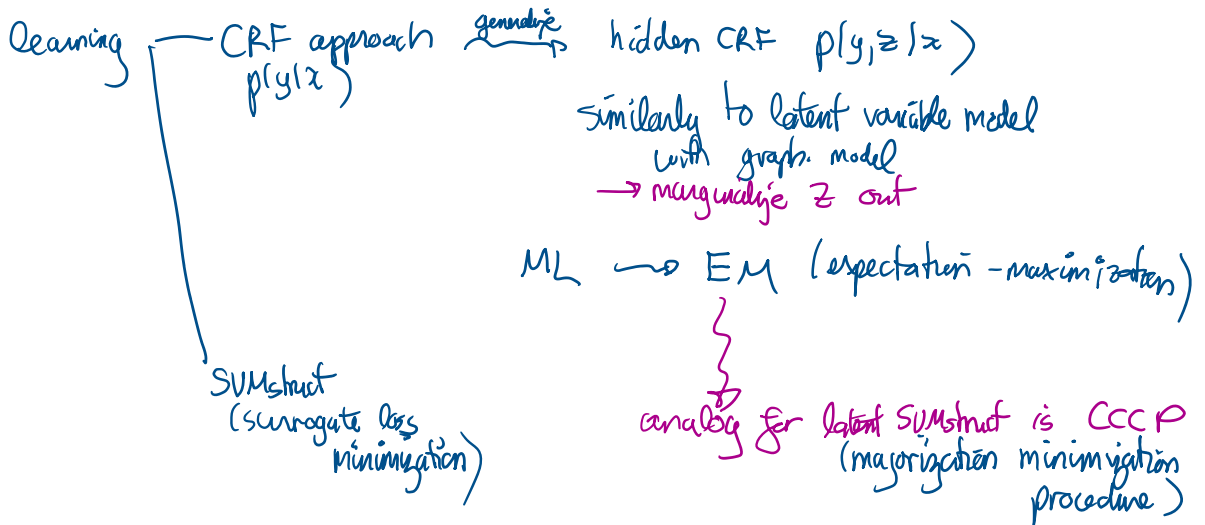 learning — CRF approach generalize → hidden CRF p(y,z|x)
p(y|x)
similarly to latent variable model
with graph. model
→ marginalize z out
ML → EM (expectation-maximization)
SVMstruct
(surrogate loss
minimization)
analog for latent SVMstruct is CCCP
(majorization minimization
procedure)